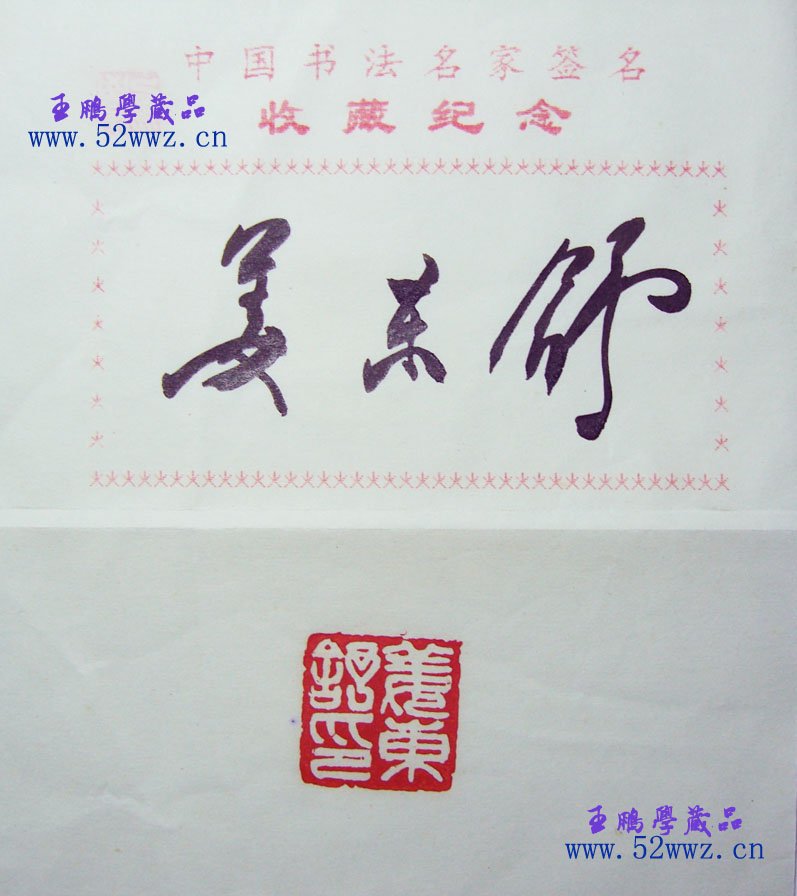 中国书法名家签名
王鹏學藏品
收藏纪念
www.52wwz.cn
姜东舒
姜東舒印
王鹏學藏品
www.52wwz.cn